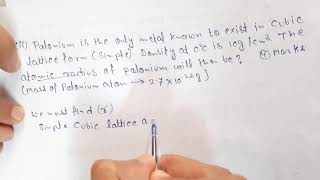 Polonium is the only metal known to exist in cubic
lattice form (simple). Density at 0°C is 10g/cm³. The
atomic radius of polonium will then be? 4 Marks
(mass of Polonium atom → 2.7 × 10
We must find (r)
Simple Cubic lattice a =